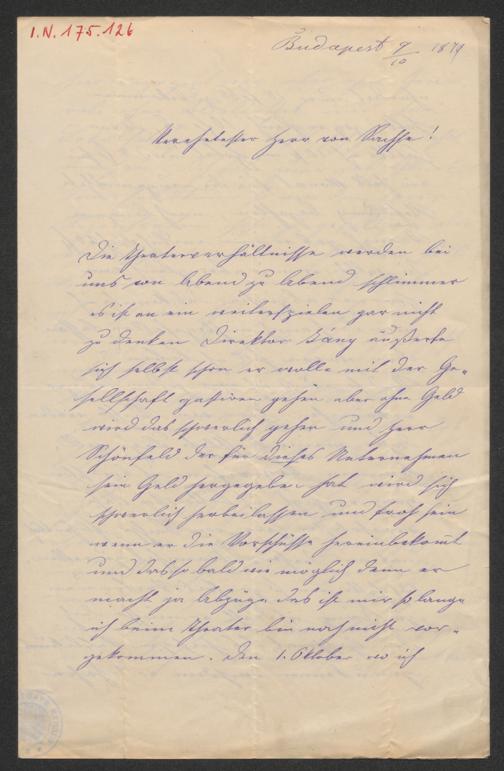 I.N. 175.126
Budapest 9/10 1879
Verehrtester Herr von Sachse!
Die Theaterverhältnisse werden bei
uns von Abend zu Abend schlimmer
es ist an ein weiterspielen gar nicht
zu denken Direktor äußerte
sich selbst schon er wolle mit der Ge-
sellschaft gastiren gehen aber ohne Geld
wird das schwerlich gehen und Herr
Schönfeld der für dieses Unternehmen
sein Geld hergegeben hat wird sich
schwerlich herbeilassen und froh sein
wenn er die Vorschüsse hereinbekomt
und das so bald wie möglich denn er
macht ja Abzüge das ist mir so lange
ich beim Theater bin noch nicht vor-
gekommen. Den 1. Oktober wo ich